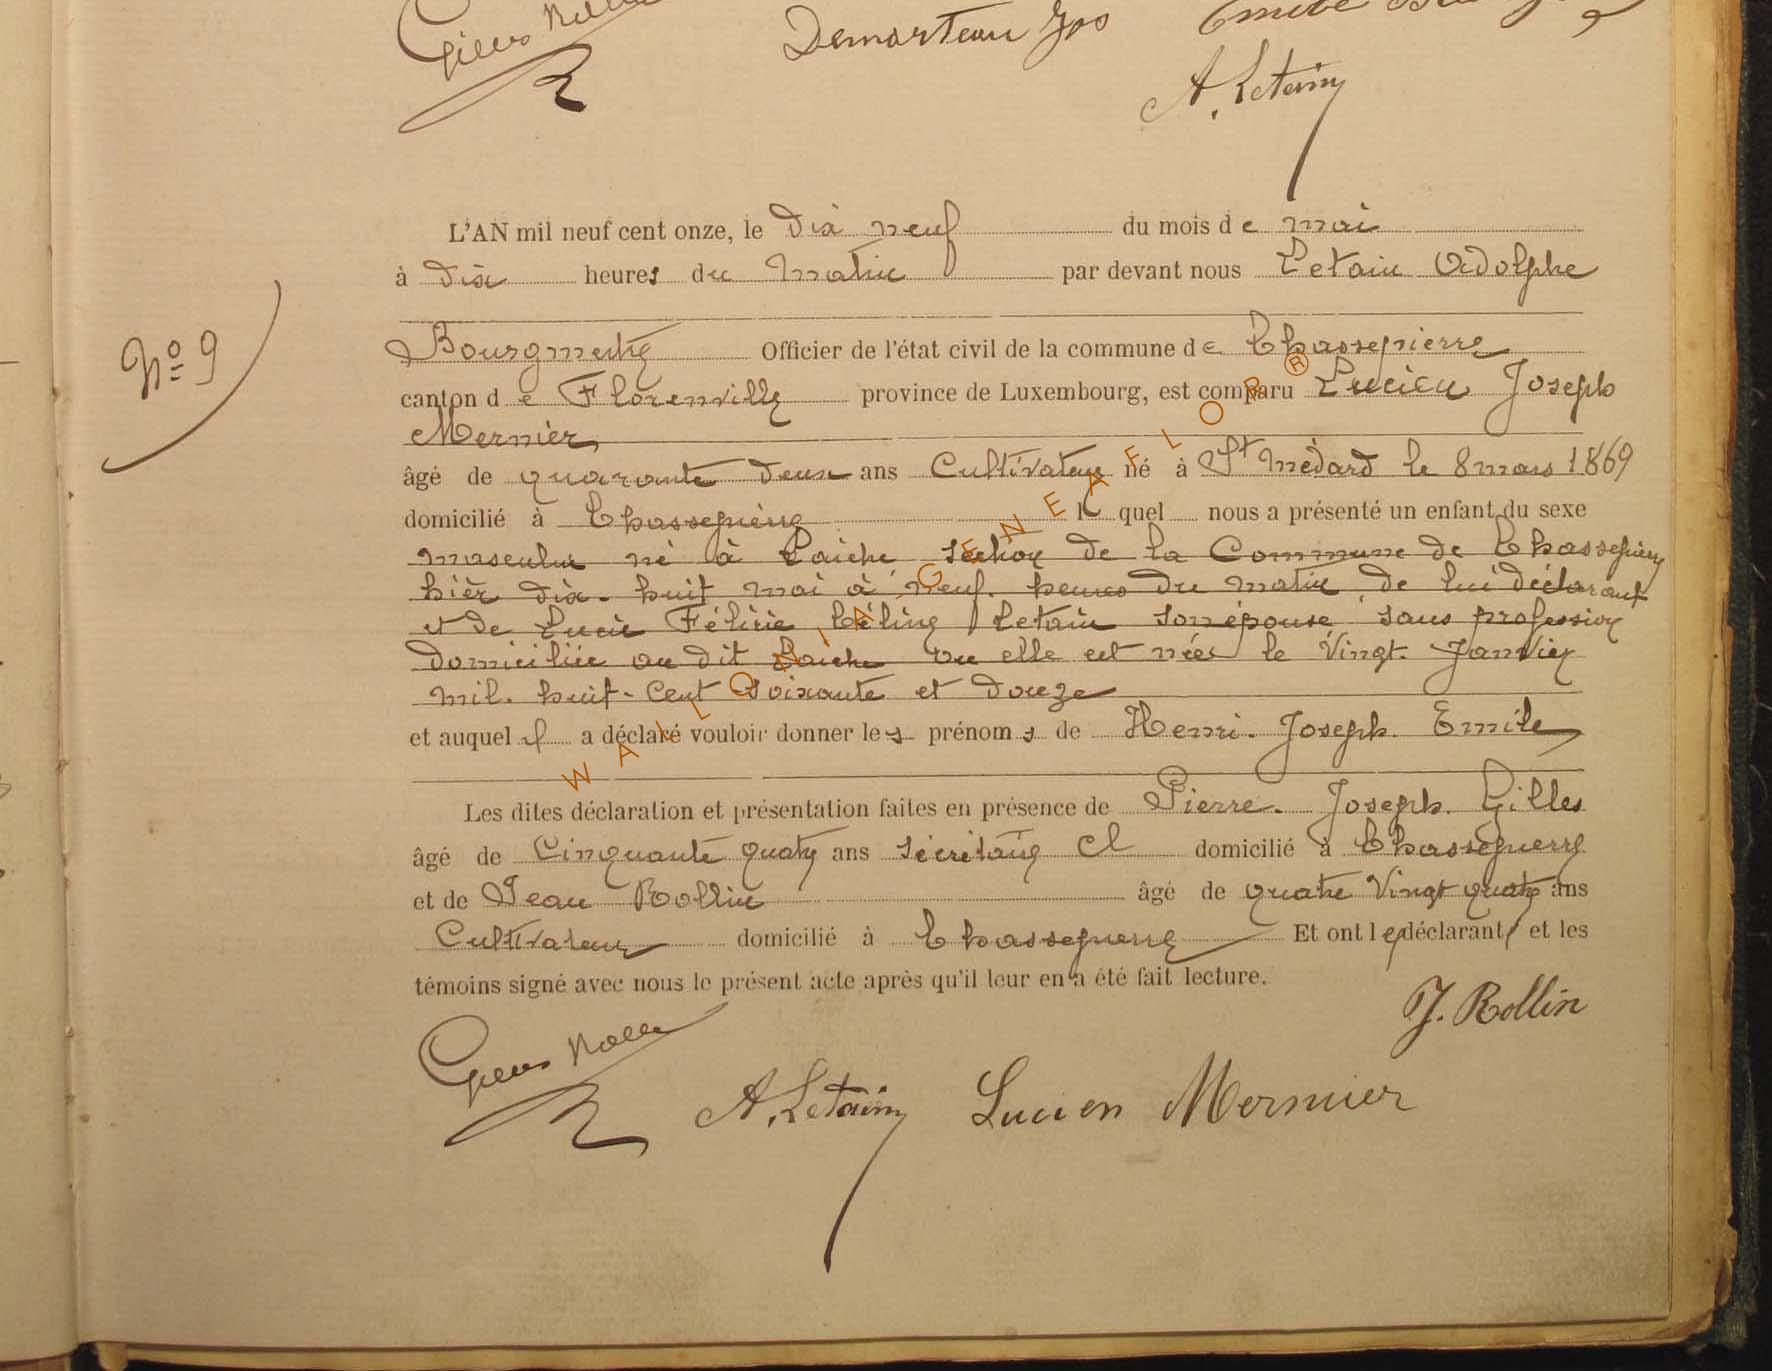 Demarteau Jos
A. Letain
L'AN mil neuf cent onze, le dix neuf du mois de mai
à dix heures du matin par devant nous Letain Adolphe
Bourgmestre Officier de l'état civil de la commune de Chassepierre
N° 9
canton de Florenville province de Luxembourg, est comparu Lucien Joseph
Mernier
âgé de quarante deux ans Cultivateur né à St Médard le 8 mars 1869
domicilié à Chassepierre lequel nous a présenté un enfant du sexe
masculin né à Laiche section de la Commune de Chassepierre
hièr dix-huit mai à neuf heures du matin, de lui déclarant
et de Lucie Félicie Céline Letain son épouse sans profession
domiciliée au dit Laiche ou elle est née le vingt Janvier
mil-huit-cent soixante et douze
et auquel il a déclaré vouloir donner les prénoms de Henri Joseph Emile
Les dites déclaration et présentation faites en présence de Pierre Joseph Gilles
âgé de Cinquante quatre ans secrétaire cl domicilié à Chassepierre
et de Jean Rollin âgé de quatre vingt quatre ans
Cultivateur domicilié à Chassepierre Et ont le déclarant et les
témoins signé avec nous le présent acte après qu'il leur en a été fait lecture.
J. Rollin
A. Letain Lucien Mernier
WALLONIA-GENEAFLOR®